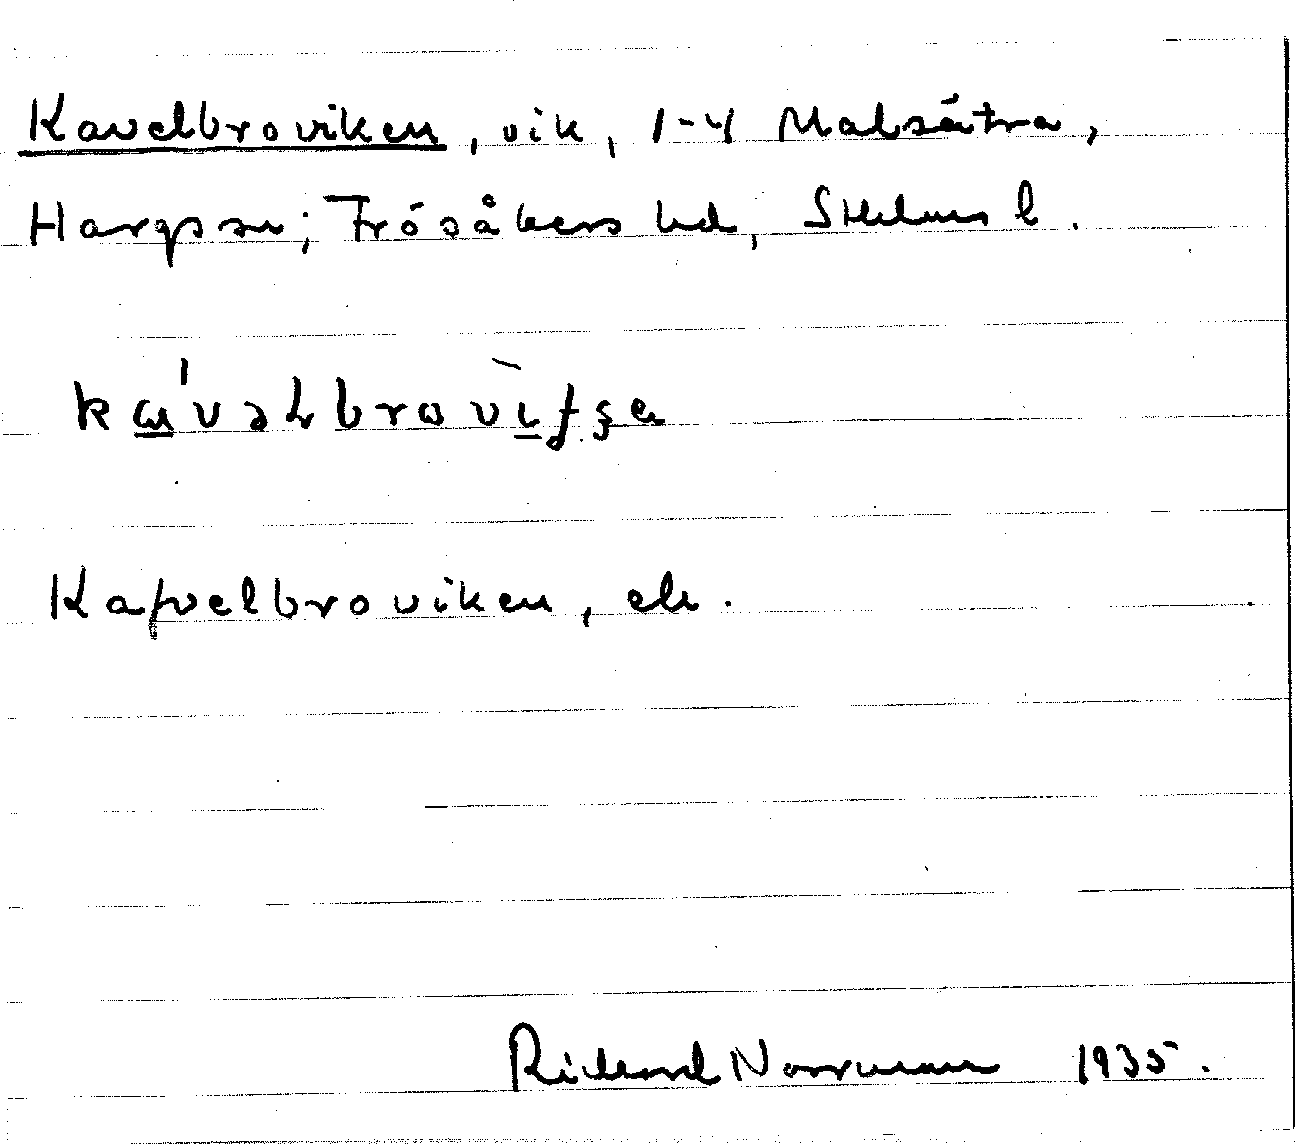 Kavelbroviken, vik, 1-4 Malsätra,
Hargs sn; Frösåkers hd, Sthlms l.
Kafvelbroviken, ek.
Richard Norrman 1935.